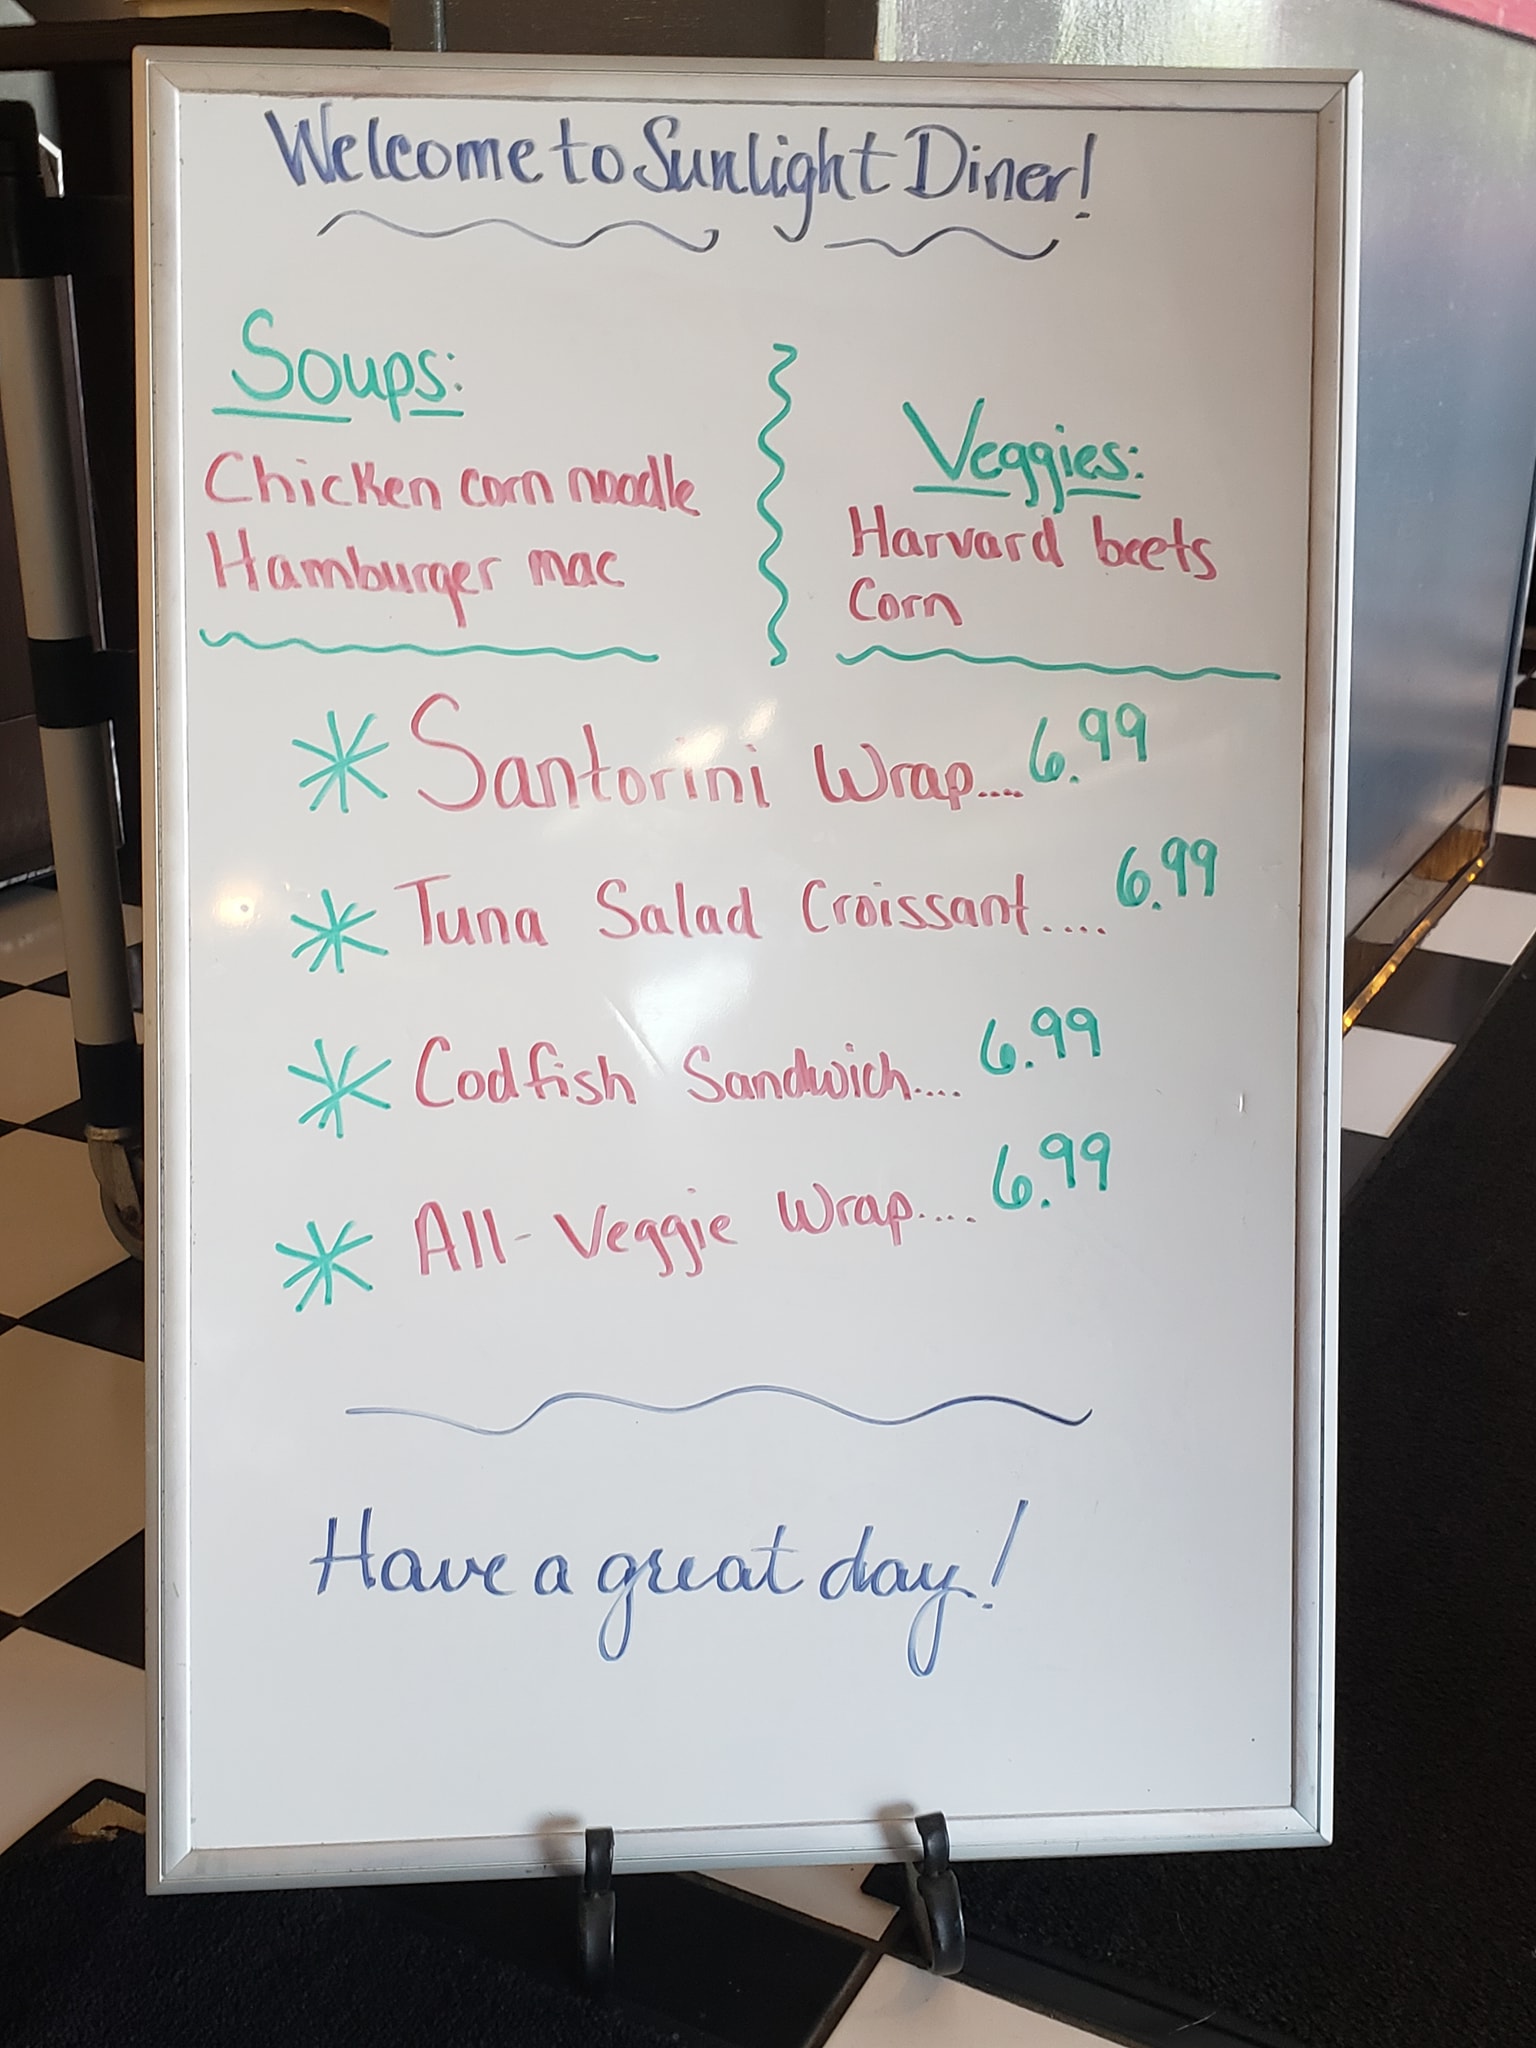 Welcome to Sunlight Diner!
Soups:
Chicken corn noodle
Hamburger mac
Veggies:
Harvard beets
Corn
* Santorini Wrap.... 6.99
* Tuna Salad Croissant.... 6.99
* Codfish Sandwich.... 6.99
* All-Veggie Wrap.... 6.99
Have a great day!